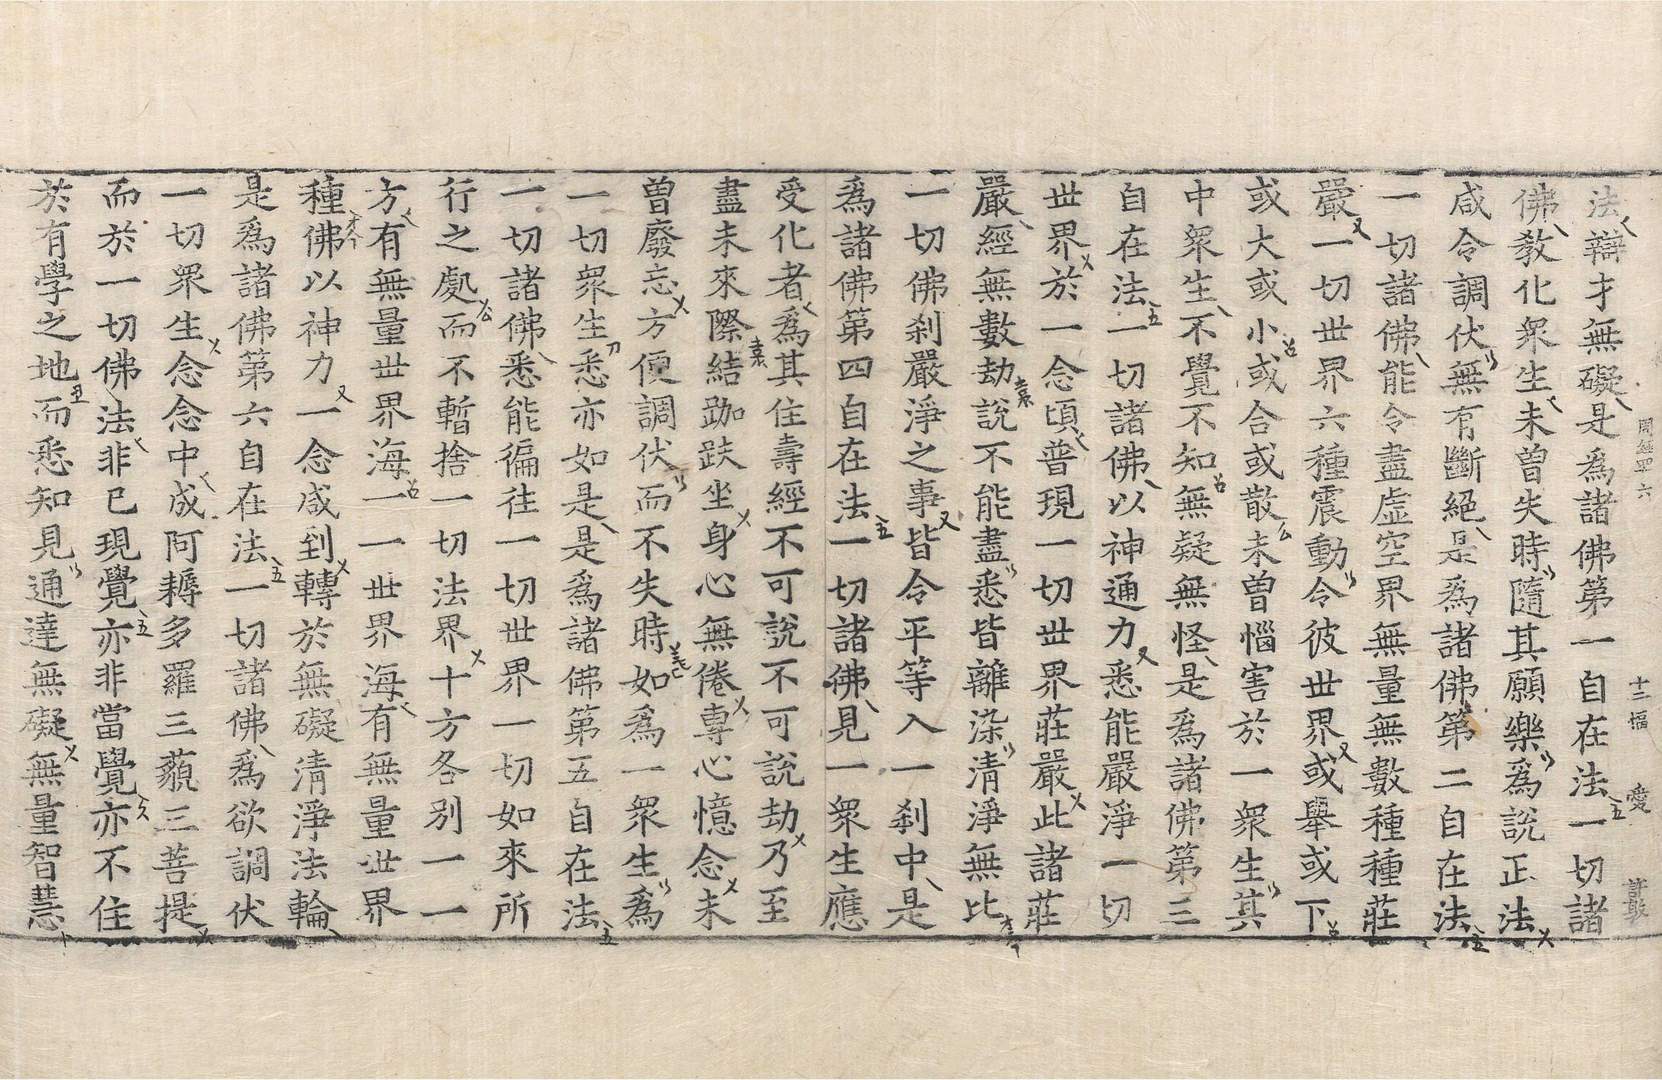 周經四六 十二幅 愛 許敦
法辯才無礙是為諸佛第一自在法一切諸
佛教化衆生未曾失時隨其願樂為説正法
咸令調伏無有斷絕是為諸佛第二自在法
一切諸佛能令盡虛空界無量無數種種莊
嚴一切世界六種震動令彼世界或舉或下
或大或小或合或散未曾惱害於一衆生其
中衆生不覺不知無疑無怪是為諸佛第三
自在法一切諸佛以神通力悉能嚴淨一切
世界於一念頃普現一切世界莊嚴此諸莊
嚴經無數劫説不能盡悉皆離染清淨無比
一切佛刹嚴淨之事皆令平等入一刹中是
為諸佛第四自在法一切諸佛見一衆生應
受化者為其住壽經不可説不可説劫乃至
盡未來際結跏趺坐身心無倦專心憶念未
曾廢忘方便調伏而不失時如為一衆生為
一切衆生悉亦如是是為諸佛第五自在法
一切諸佛悉能徧往一切世界一切如來所
行之處而不暫捨一切法界十方各別一一
方有無量世界海一一世界海有無量世界
種佛以神力一念咸到轉於無礙清淨法輪
是為諸佛第六自在法一切諸佛為欲調伏
一切衆生念念中成阿耨多羅三藐三菩提
而於一切佛法非已現覺亦非當覺亦不住
於有學之地而悉知見通達無礙無量智慧